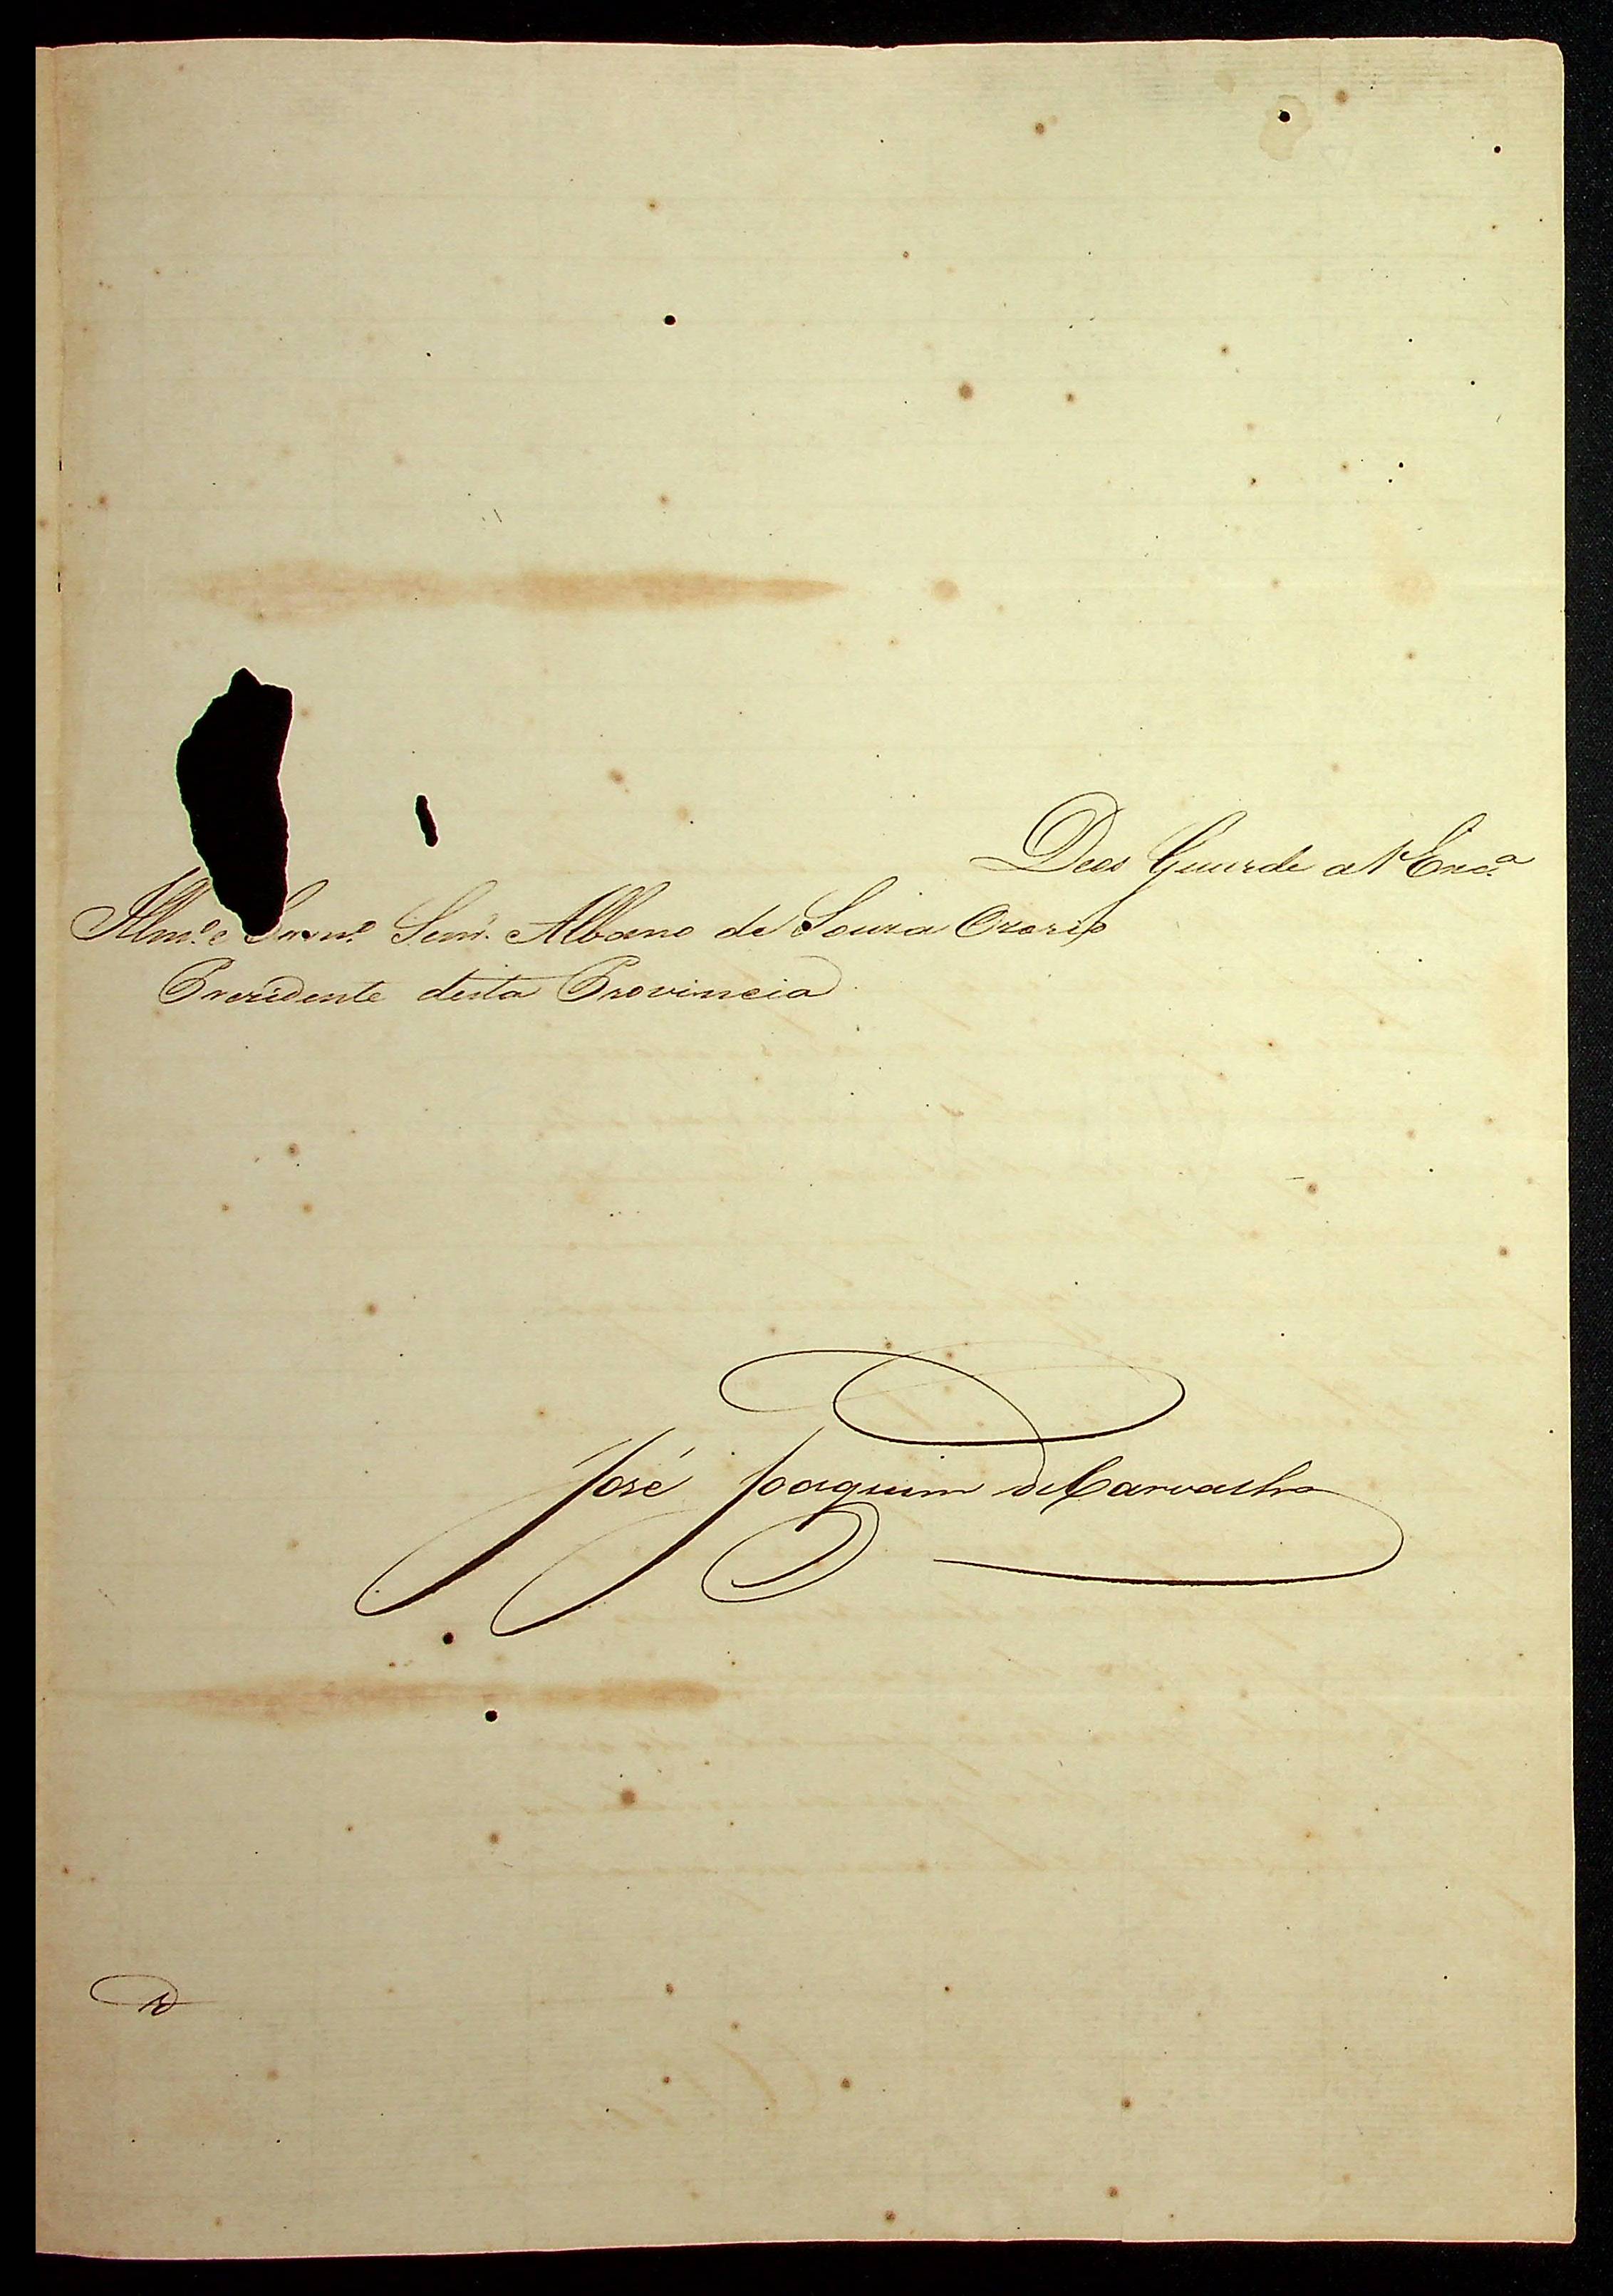 Deos Guarde a V Exc.ª
Illm.º e Exm.º Senr. Albano de Souza Ozorio
Prezidente desta Provincia
José Joaquim de Carvalho